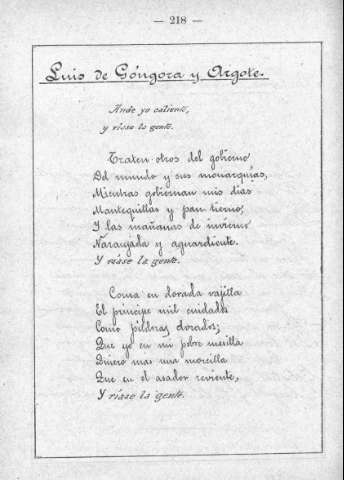 — 218 —
Luis de Góngora y Argote.
Ande yo caliente,
y ríase la gente.
Traten otros del gobierno
Del mundo y sus monarquías,
Mientras gobiernan mis días
Mantequillas y pan tierno,
Y las mañanas de invierno
Naranjada y aguardiente.
Y ríase la gente.
Coma en dorada vajilla
El príncipe mil cuidados
Como píldoras dorados;
Que yo en mi pobre mesilla
Quiero mas una morcilla
Que en el asador reviente,
Y ríase la gente.